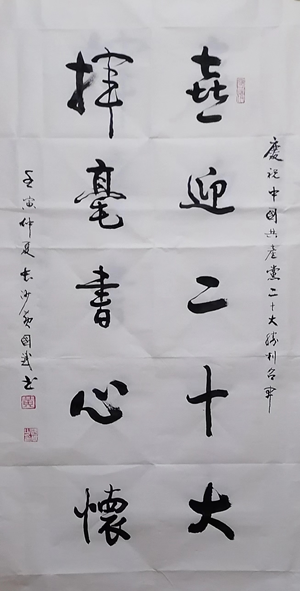 慶祝中國共產黨二十大勝利召開
喜迎二十大
揮毫書心懷
壬寅仲夏長沙黄國武書